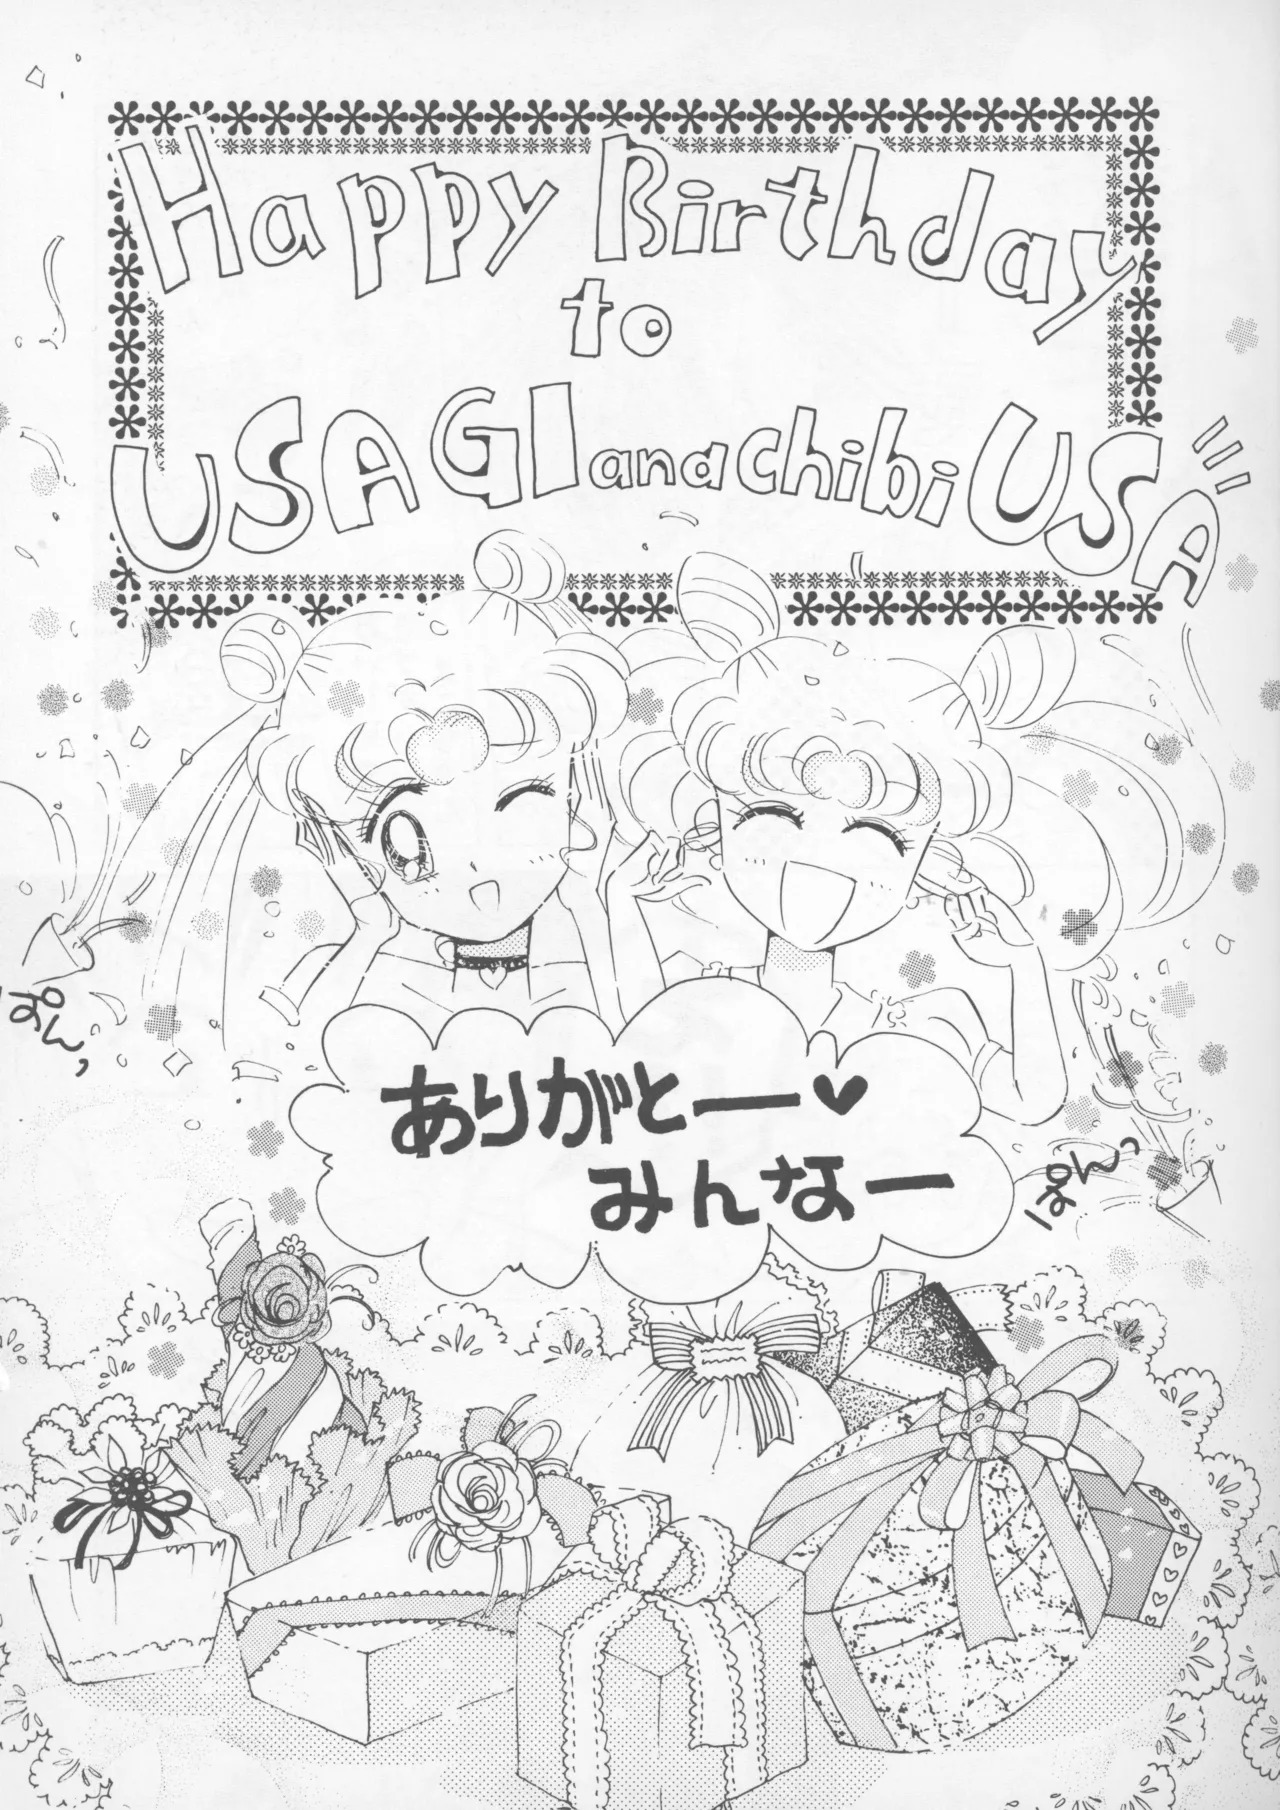 Happy Birthday
to
USAGI and chibiUSA
ぱん,
ありがとー♥
みんなー
ぱんっ